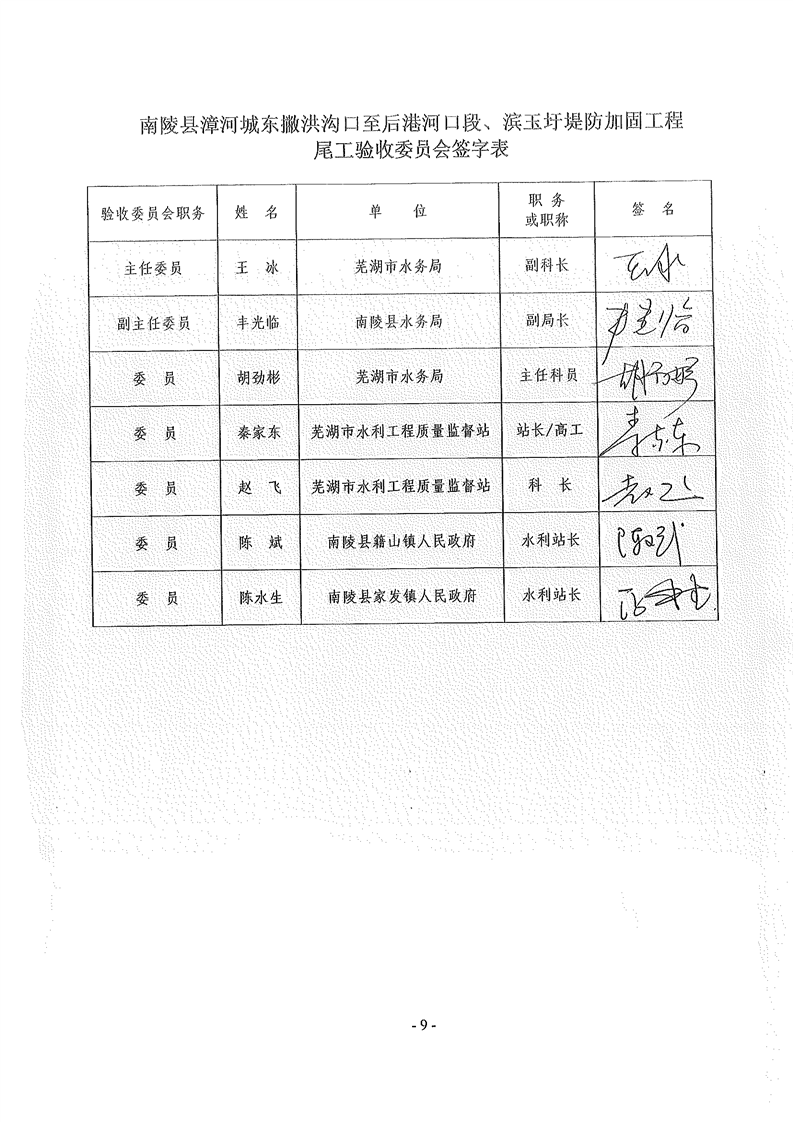 南陵县漳河城东撇洪沟口至后港河口段、滨玉圩堤防加固工程
尾工验收委员会签字表
验收委员会职务 姓 名 单 位 职 务 或职称 签 名
主任委员 王 冰 芜湖市水务局 副科长 王冰
副主任委员 丰光临 南陵县水务局 副局长
委 员 胡劲彬 芜湖市水务局 主任科员 胡劲彬
委 员 秦家东 芜湖市水利工程质量监督站 站长/高工 秦家东
委 员 赵 飞 芜湖市水利工程质量监督站 科 长 赵飞
委 员 陈 斌 南陵县籍山镇人民政府 水利站长 陈斌
委 员 陈水生 南陵县家发镇人民政府 水利站长 陈水生
- 9 -